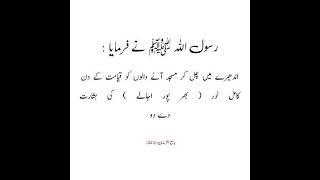 رسول اللہ ﷺ نے فرمایا :
اندھیرے میں چل کر مسجد آنے والوں کو قیامت کے دن
کامل نور ( بھر پور اجالے ) کی بشارت
دے دو